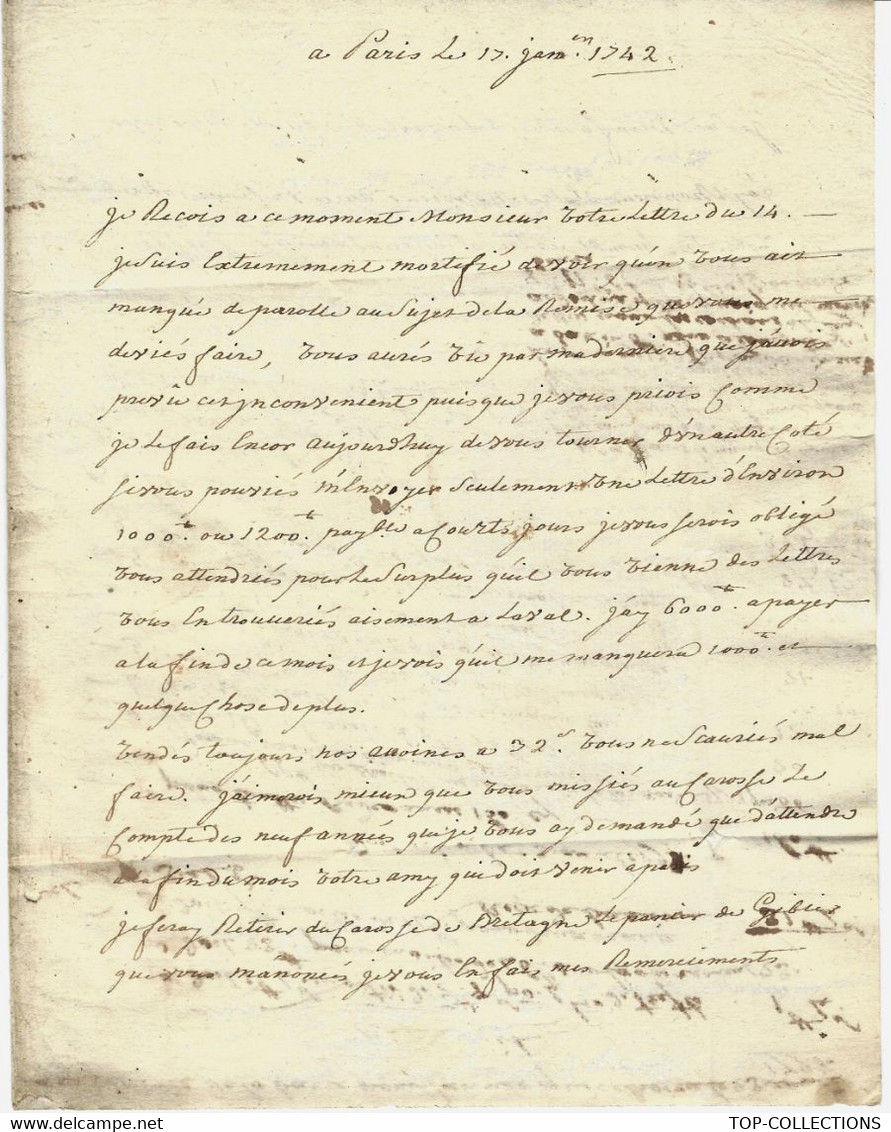 a Paris Le 17. janv.en 1742.
je Recois a ce moment Monsieur votre Lettre du 14. —
je suis Extremement mortifié de voir qu'on vous ait
manqué de parolle au Sujet de la Remise que vous me
deviés faire, vous aurés vû par ma derniere que j'avois
prevû cet jnconvenient puisque je vous priois Comme
je le fais Encor aujourdhuy de vous tourner d'un autre Coté
si vous pouviés m'Envoyer Seulement une Lettre d'Environ
1000lt. ou 1200lt. payble a Courts jours je vous serois obligé
vous attendriés pour Le Surplus qu'il vous vienne des Lettres
vous En trouveriés aisement a Laval. j'ay 6000lt. a payer
a la fin de ce mois et je vois qu'il me manquera 1000lt. et
quelque Chose de plus.
vendés toujours nos avoines a 32s. vous ne Scauriés mal
faire. j'aimerois mieux que vous missiés au Carosse Le
Compte des neuf années que je vous ay demandé que d'attendre
a la fin du mois votre amy qui doit venir a paris
je feray Retirer du Carosse de Bretagne Le panier de Gibier
que vous m'anoncés je vous En fais mes Remerciments
TOP-COLLECTIONS